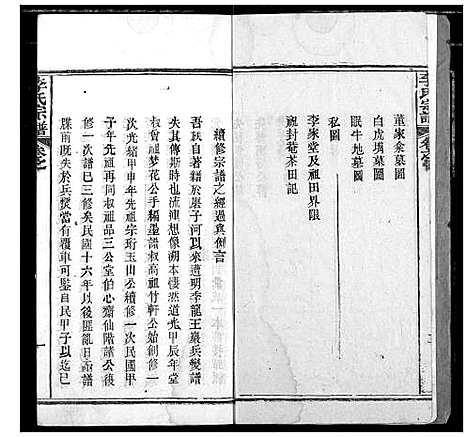 李氏宗譜
董家凸墓圖
白虎墳墓圖
眠牛地墓圖
私圖
李家堂及祖田界限
祖封菴茶田記
續修宗譜之經過與例言
吾族自著籍於磨子河以來遭明季龍王巖兵燹譜
失其傳斯時也流連想像溯本悽然道光甲辰年堂
叔曾祖夢花公手編墨譜叔高祖竹軒公始創修一
次光緒甲申年先祖宗珩玉山公續修一次民國甲
子年先祖再同叔祖品三公堂伯心齋仙階諸公復
修一次譜已三修矣民國十六年以後匪亂日亟譜
牒前既失於兵燹當有覆車可鑒自民甲子以迄已
李氏宗譜
一